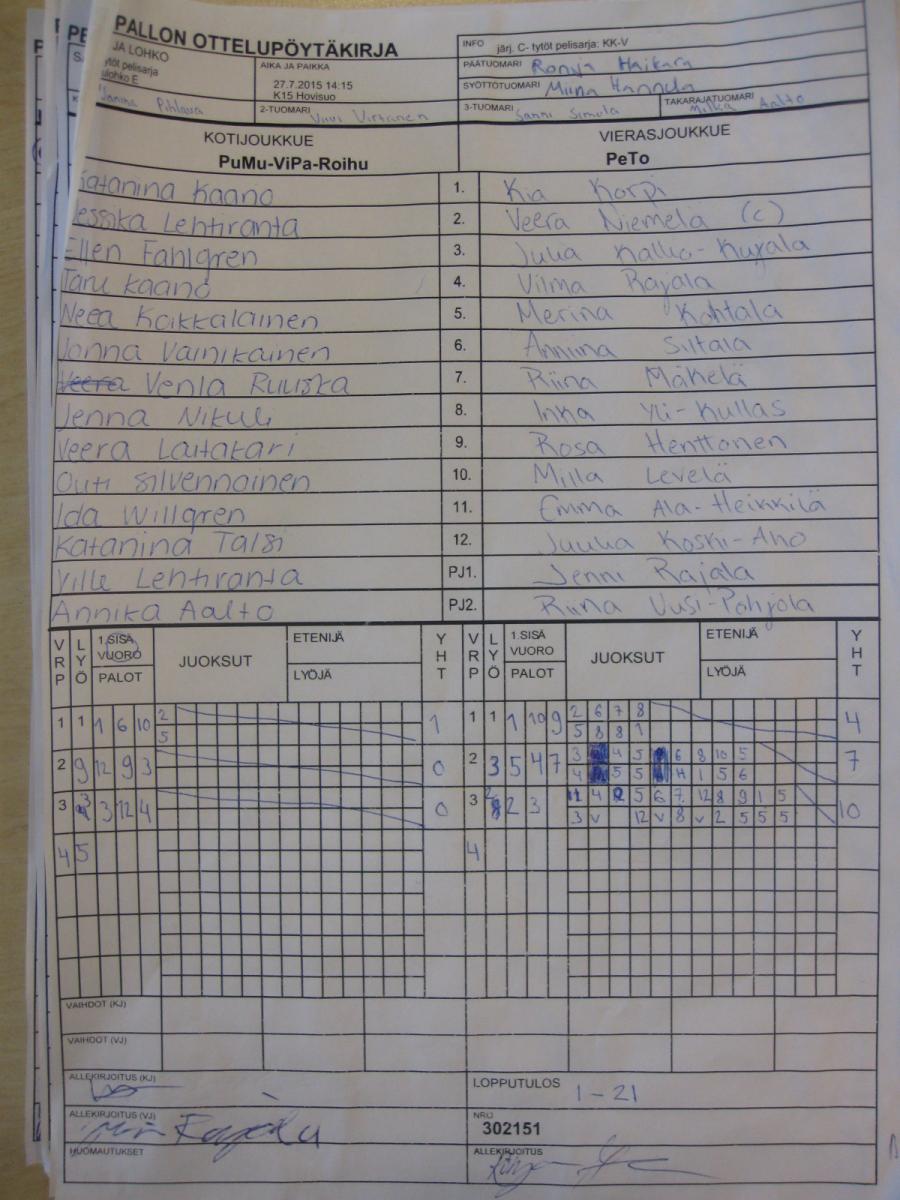 PALLON OTTELUPÖYTÄKIRJA
INFO järj. C- tytöt pelisarja: KK-V
JA LOHKO
tytöt pelisarja
lohko E
AIKA JA PAIKKA
27.7.2015 14:15
K15 Hovisuo
PÄÄTUOMARI Ronja Haikara
SYÖTTÖTUOMARI Miina Hannula
Janina Pihlava
2-TUOMARI Viivi Virtanen
3-TUOMARI Sanni Simula
TAKARAJATUOMARI Milka Aalto
KOTIJOUKKUE VIERASJOUKKUE
PuMu-ViPa-Roihu PeTo
Katariina Kaano 1. Kia Korpi
Jessika Lehtiranta 2. Veera Niemelä (c)
Ellen Fahlgren 3. Julia Kallio-Kujala
Taru Kaano 4. Vilma Rajala
Neea Koikkalainen 5. Merina Kohtala
Jonna Vainikainen 6. Anniina Siltala
Veera Venla Ruuska 7. Riina Mäkelä
Jenna Nikuli 8. Inka Yli-Kullas
Veera Laitakari 9. Rosa Henttonen
Outi Silvennoinen 10. Milla Levelä
Ida Willgren 11. Emma Ala-Heikkilä
Katariina Talsi 12. Juulia Koski-Aho
Ville Lehtiranta PJ1. Jenni Rajala
Annika Aalto PJ2. Riina Uusi-Pohjola
VRP LYÖ 1.SISÄ VUORO PALOT JUOKSUT ETENIJÄ LYÖJÄ YHT VRP LYÖ 1.SISÄ VUORO PALOT JUOKSUT ETENIJÄ LYÖJÄ YHT
1 1 1 6 10 2 1 1 1 1 10 9 2 6 7 8 4
5 5 8 8 1
2 9 12 9 3 0 2 3 5 4 7 3 4 5 6 8 10 5 7
4 5 5 11 1 5 6
3 3 3 12 4 0 3 2 2 3 11 4 2 5 6 7 12 8 9 1 5 10
3 v 12 v 8 v 2 5 5 5
4 5 4
VAIHDOT (KJ)
VAIHDOT (VJ)
ALLEKIRJOITUS (KJ)
LOPPUTULOS 1-21
ALLEKIRJOITUS (VJ)
NRO
302151
HUOMAUTUKSET
ALLEKIRJOITUS